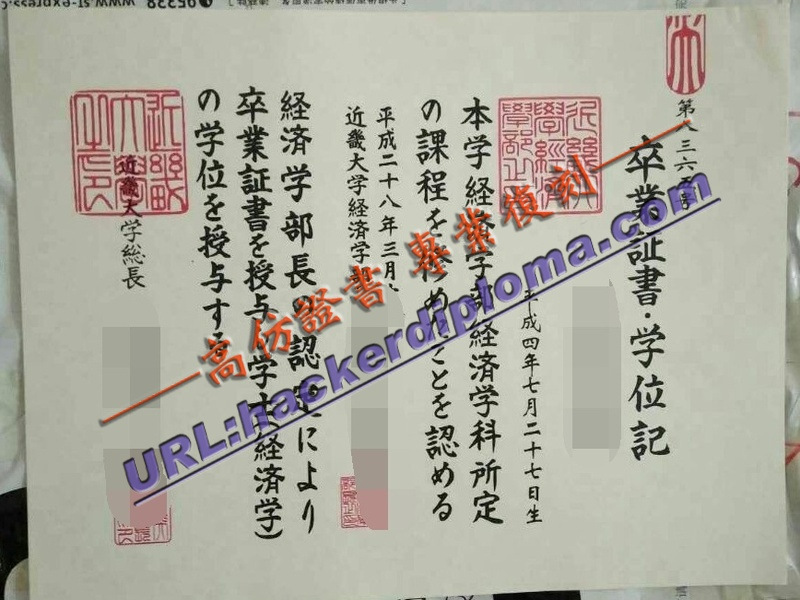 第八三六
卒業証書・学位記
平成四年七月二十七日生
本学経済学部経済学科所定
の課程を修めたことを認める
平成二十八年三月
近畿大学経済学部
経済学部長の認定により
卒業証書を授与し学士(経済学)
の学位を授与する
近畿大学総長
高仿證書 專業復刻
URL:hackerdiploma.com
95338 www.sf-express.c